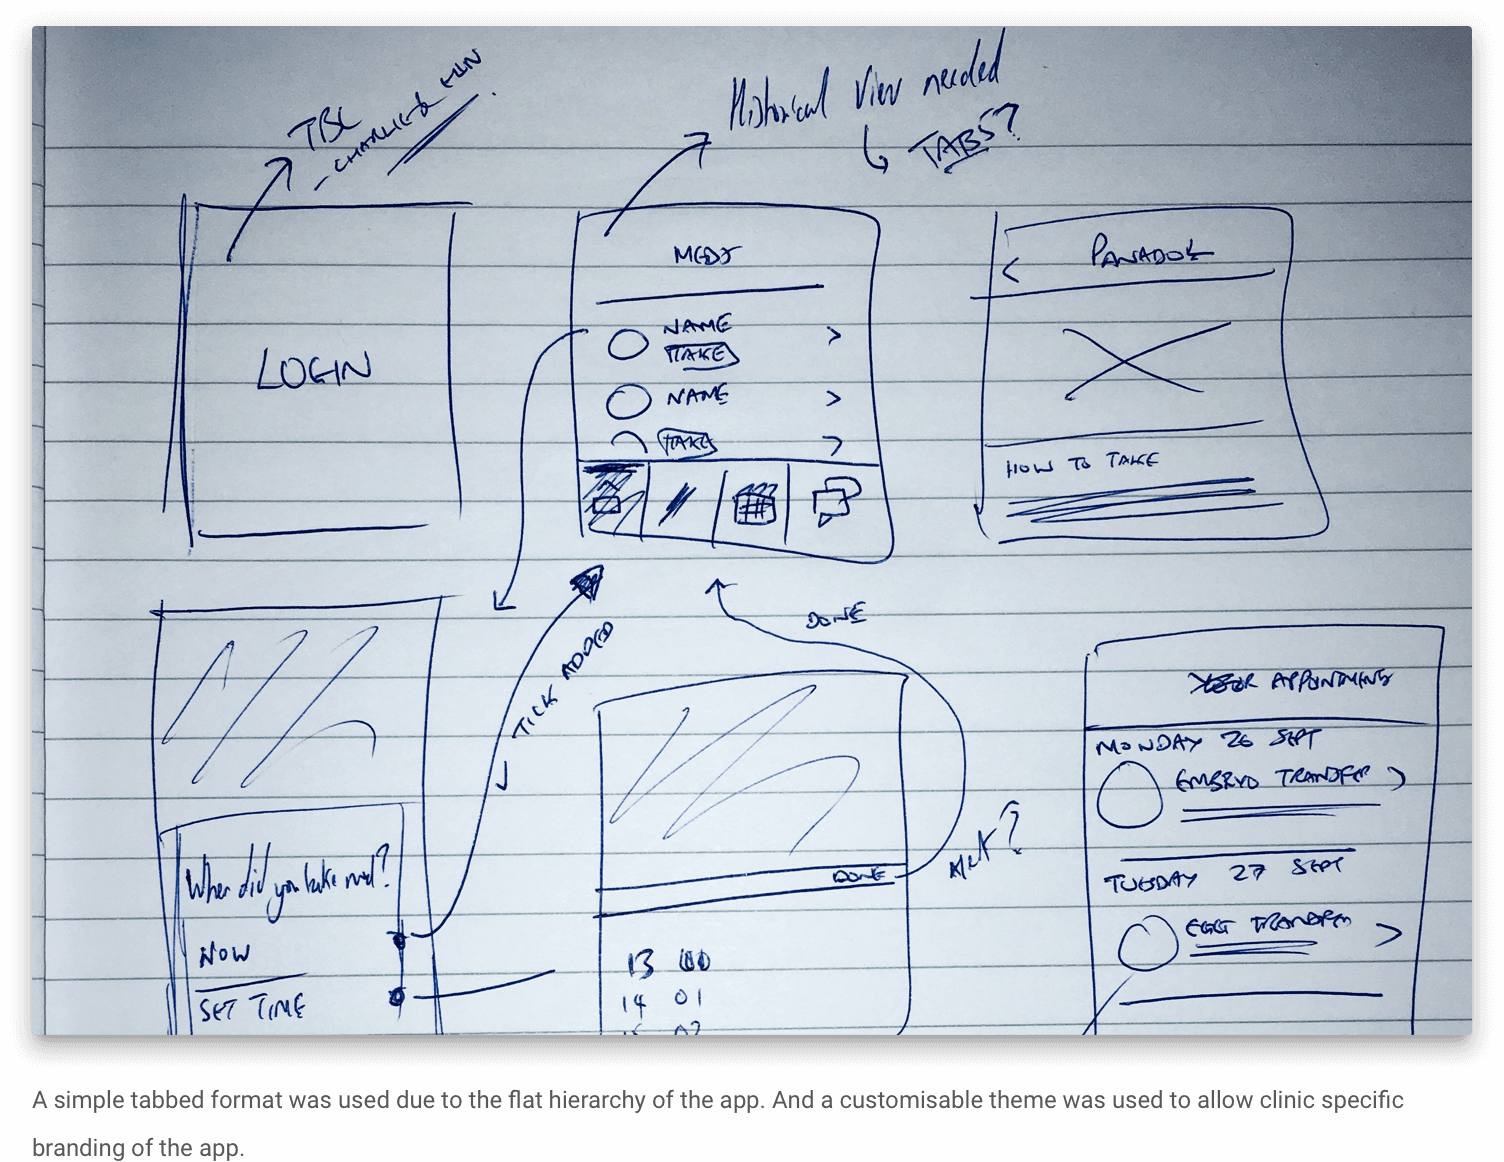 TBC
Historical View needed
TABS?
LOGIN
MEDS
NAME
TAKE
NAME
TAKE
PANADOL
HOW TO TAKE
TICK ADDED
DONE
When did you take med?
NOW
SET TIME
DONE
13 00
14 01
15 02
APPOINTMENTS
MONDAY 26 SEPT
EMBRYO TRANSFER
TUESDAY 27 SEPT
EGG TRANSFER
A simple tabbed format was used due to the flat hierarchy of the app. And a customisable theme was used to allow clinic specific
branding of the app.